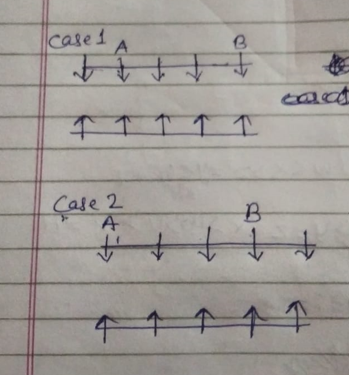 Case 1
A B
Case 2
A B